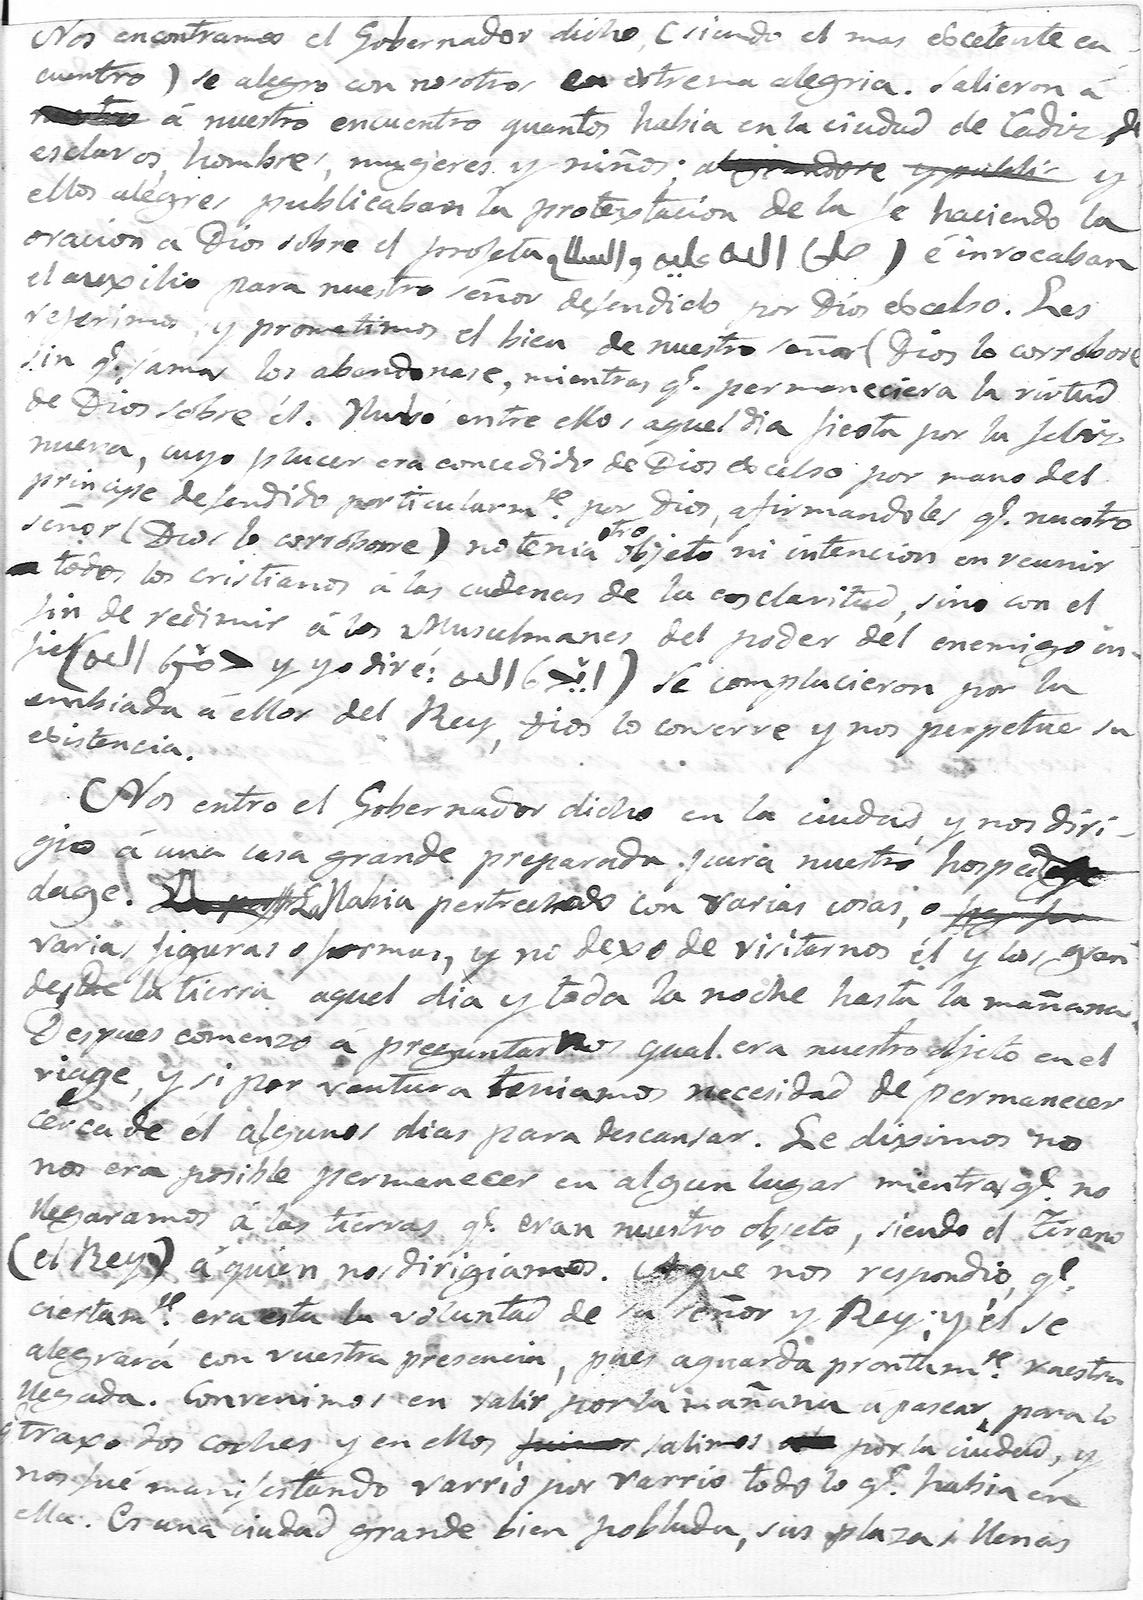 Nos encontramos el Gobernador dicho, (siendo el mas escelente en
cuentro) se alegro con nosotros en estrema alegria. Salieron á
nuestro á nuestro encuentro quantos habia en la ciudad de Cadiz de
esclavos, hombres, mugeres y niños; alegrandose y public y
ellos alegres publicaban la protextacion de la fe haciendo la
oracion á Dios sobre el profeta, (صلى الله عليه وسلم) é invocaban
el auxilio para nuestro señor defendido por Dios escelso. Les
referimos, y prometimos el bien de nuestro señor (Dios lo corrobore
sin q.e jamas los abandonase, mientras q.e permaneciera la virtud
de Dios sobre él. Hubó entre ellos aquel dia fiesta por la feliz
nueva, cuyo placer era concedido de Dios escelso por mano del
principe defendido particularm.te por Dios, afirmandoles q.e nuestro
señor (Dios lo corrobore) no tenia otro objeto ni intencion en reunir
todos los cristianos á las cadenas de la esclavitud, sino con el
fin de redimir á los Musulmanes del poder del enemigo in-
fiel (دمره الله y yo diré: الله) Se complacieron por la
embiada á ellos del Rey, Dios lo conserve y nos perpetue su
existencia.
Nos entro el Gobernador dicho en la ciudad, y nos diri-
gio á una casa grande preparada para nuestro hospedage
dage. La Habia pertrechado con varias cosas, o
varias figuras o formas, y no dexo de visitarnos él y los gran
des de la tierra aquel dia y toda la noche hasta la mañana.
Despues comenzo á preguntarnos qual era nuestro objeto en el
viage, y si por ventura teniamos necesidad de permanecer
cerca de él algunos dias para descansar. Le diximos no
nos era posible permanecer en algun lugar mientras q.e no
llegaramos á las tierras q.e eran nuestro objeto, siendo el Tirano
(el Rey) á quien nos dirigiamos. A que nos respondio, q.e
ciertam.te era esta la voluntad de su señor y Rey; y él se
alegrará con vuestra presencia, pues aguarda prontam.te vuestra
llegada. Convenimos en salir por la mañana a pasear, para lo
q traxo dos coches y en ellos fuimos salimos por la ciudad, y
nos fué manifestando varrio por varrio todo lo q.e habia en
ella. Es una ciudad grande bien poblada, sus plazas llenas